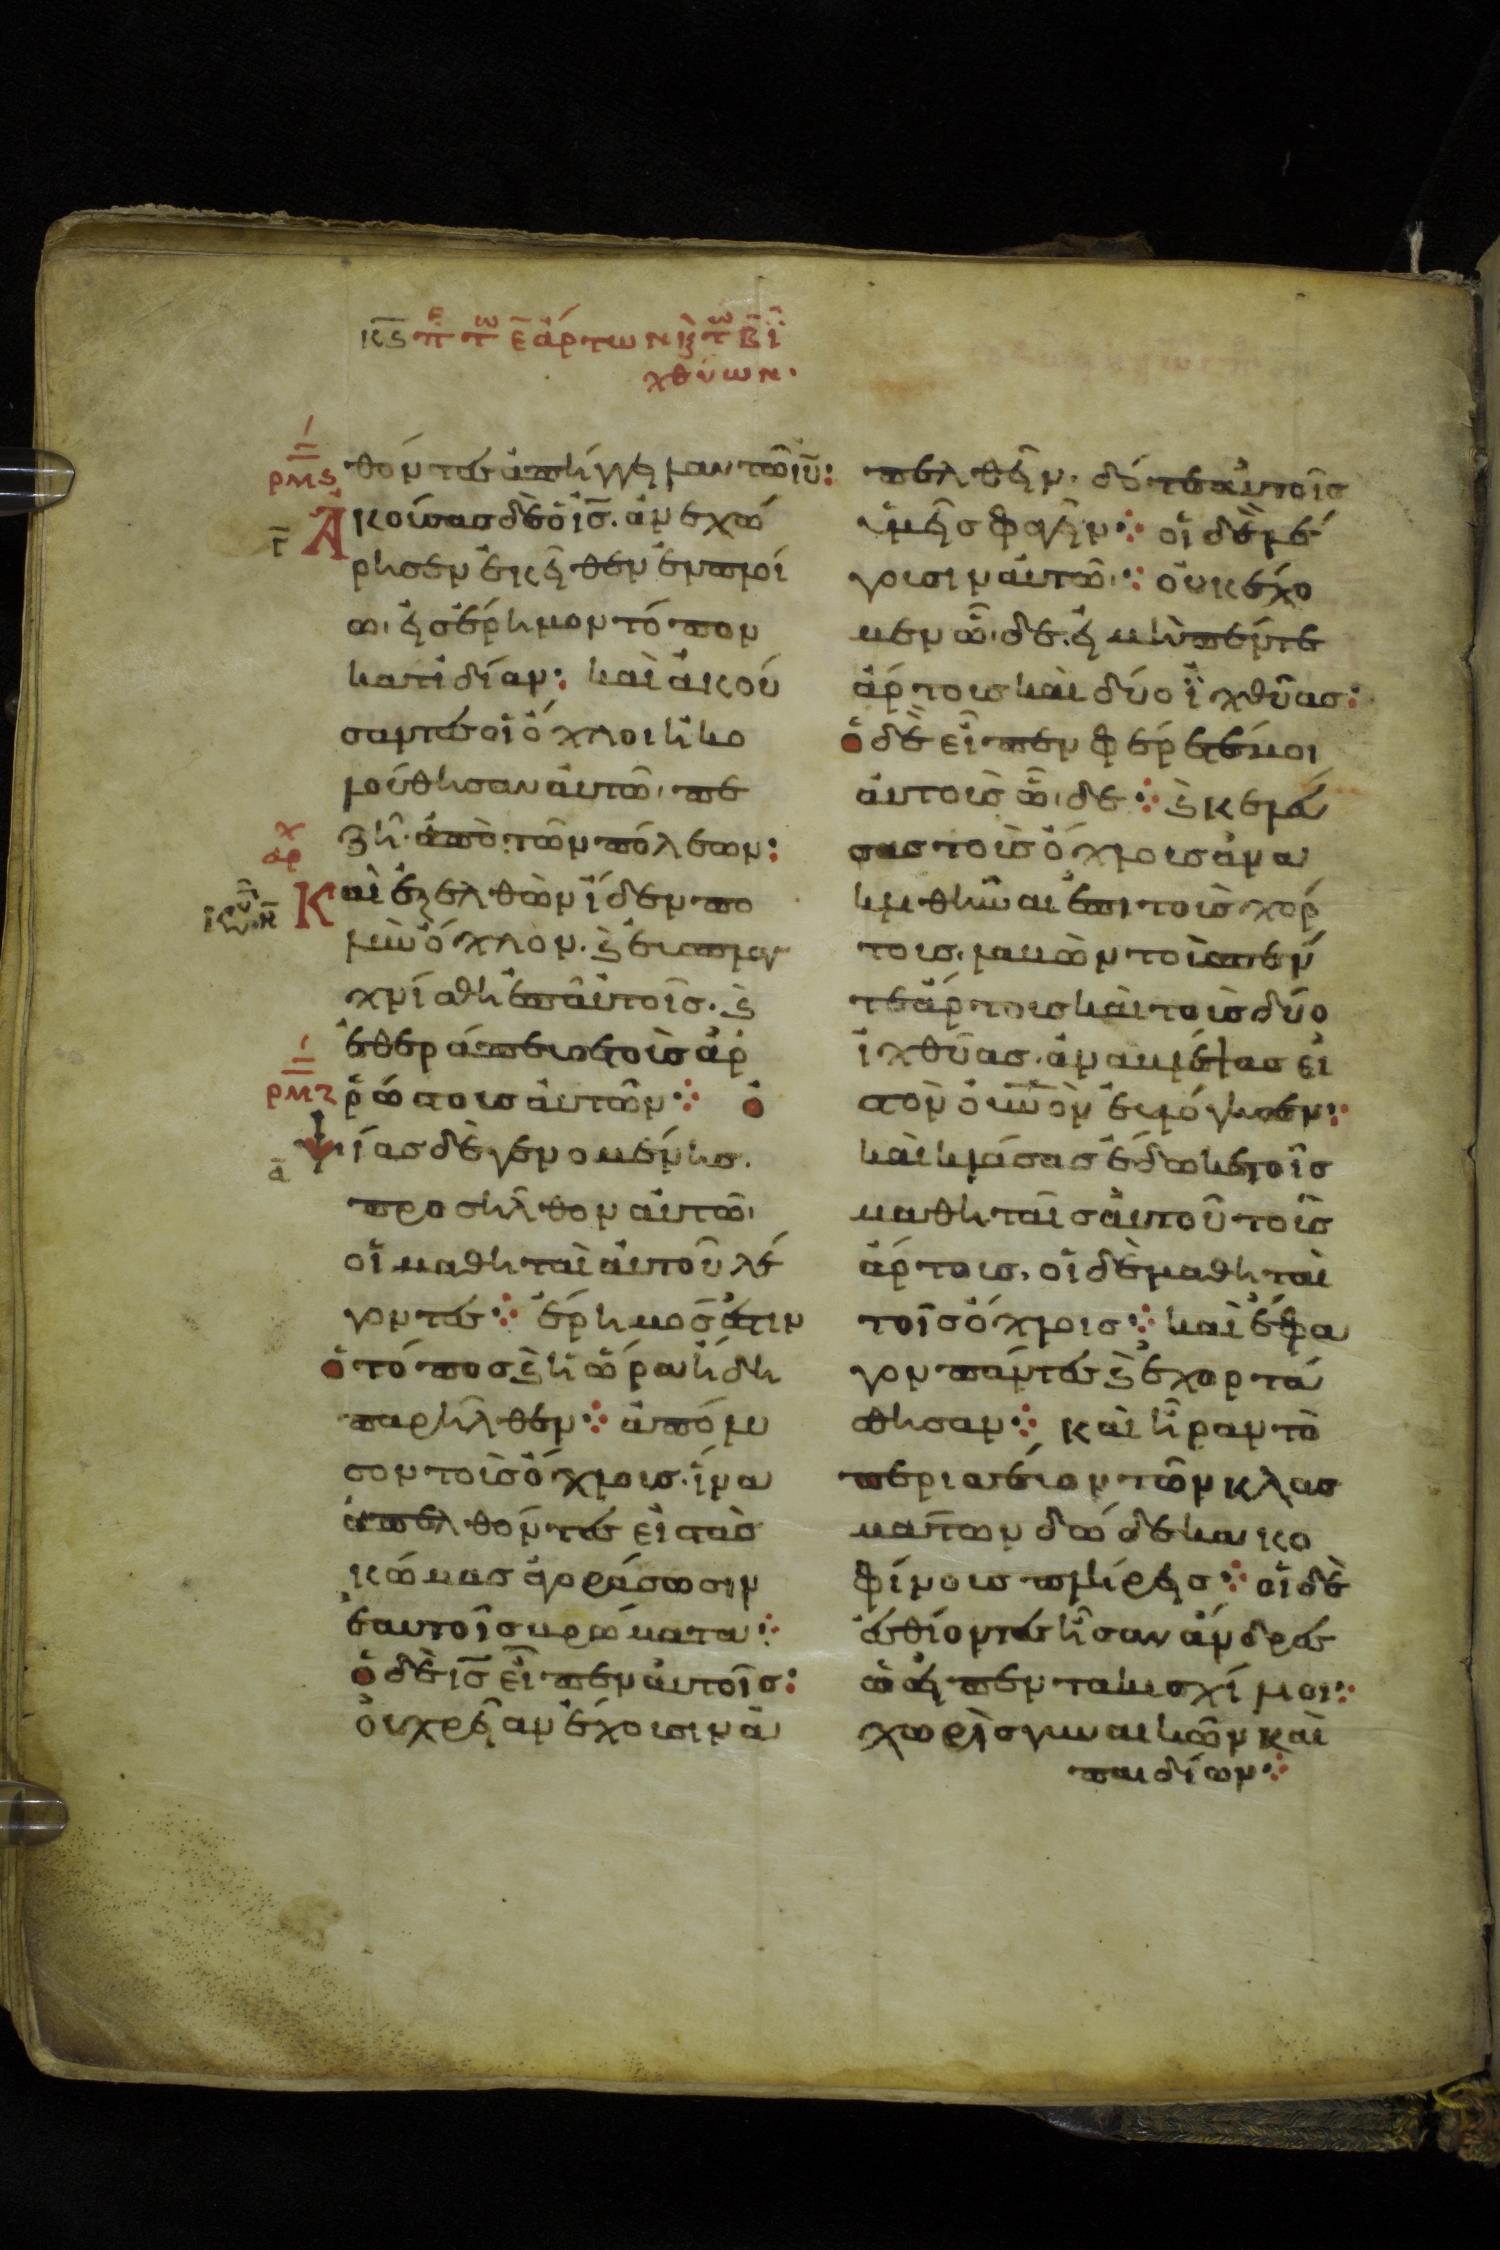 κϛ πε τω ε̅ ἄρτων κ͵ τω β̅ ἰ
χθύων.
ρμϛ
θόντες ἀπήγγειλαν τῶ ιυ̅:
Ἀκούσας δὲ ὁ ισ̅. ἀνεχώ
γ̅
ρησεν ἐκεῖθεν ἐν πλοί
ω, εἰς ἔρημον τόπον
κατιδίαν: καὶ ἀκού
σαντες οἱ ὄχλοι ἠκο
λούθησαν αὐτῶ, πε
ζῆ ἀπὸ τῶν πόλεων:
αρχ
Καὶ ἐξελθὼν ἴδεν πο
λὺν ὄχλον. ϗ ἐσπλαγ
χνίσθη ἐπ αὐτοῖς. ϗ
ἐθεράπευσε τοὺς ἀρ
ρμζ
ῥώστους αὐτῶν⁘ ὀ
ψίας δὲ γενομένης.
α̅
προσῆλθον αὐτῶ,
οἱ μαθηταὶ αὐτοῦ λέ
γοντες⁘ ἔρημός ἐστιν
ὁ τόπος ϗ ἡ ὥρα ἤδη
παρῆλθεν⁘ ἀπόλυ
σον τοὺς ὄχλους. ἵνα
ἀπελθόντες εἰς τὰς
κώμας ἀγοράσωσιν
ἑαυτοῖς βρώματα⁘
ὁ δὲ ισ̅ εἶπεν αὐτοῖς:
οὐ χρείαν ἔχουσιν ἀ
πελθεῖν. δότε αὐτοῖς
ὑμεῖς φαγεῖν⁘ οἱ δὲ λέ
γουσιν αὐτῶ⁘ οὐκ ἔχο
μεν ὧδε. εἰ μὴ πέντε
ἄρτους καὶ δύο ἰχθῦας:
ὁ δὲ εἶπεν φέρετέ μοι
αὐτοὺς ὧδε⁘ ϗ κελεύ
σας τοὺς ὄχλους ἀνα
κλιθῆναι ἐπὶ τοὺς χόρ
τους. λαβὼν τοὺς πέν
τε ἄρτους καὶ τοὺς δύο
ἰχθῦας. ἀναβλέψας εἰ
ς τὸν οὐνὸν εὐλόγησεν⁘
καὶ κλάσας ἔδωκε τοῖς
μαθηταῖς αὐτοῦ τοὺς
ἄρτους. οἱ δὲ μαθηταὶ
τοῖς ὄχλοις⁘ καὶ ἔφα
γον πάντες ϗ ἐχορτά
σθησαν⁘ καὶ ἦραν τὸ
περισσεῦον τῶν κλασ
μάτων δώδεκα κο
φίνους πλήρεις⁘ οἱ δὲ
ἐσθίοντες ἦσαν ἄνδρες
ὡσεὶ πεντακισχίλιοι⁘
χωρὶς γυναικῶν καὶ
παιδίων⁘